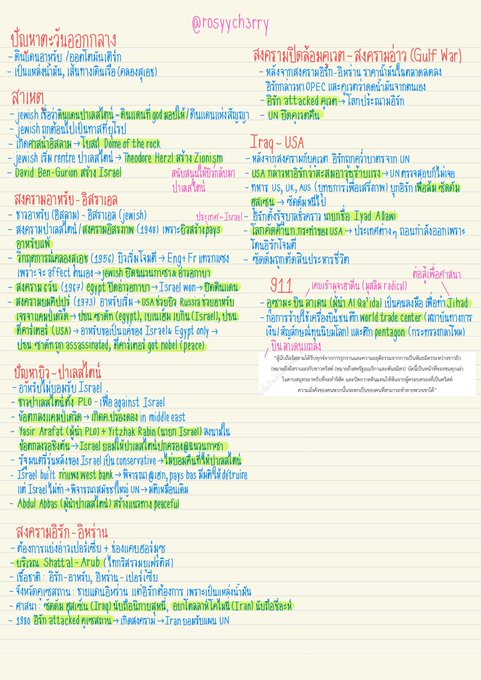 @rosyych3rry
ปัญหาตะวันออกกลาง
- ดินแดนอาหรับ /ออตโตมันเติร์ก
- เป็นแหล่งน้ำมัน, เส้นทางเดินเรือ (คลองสุเอซ)
สาเหตุ
- jewish เชื่อว่าดินแดนปาเลสไตน์ - ดินแดนที่ god มอบให้ / ดินแดนแห่งสัญญา
- jewish ถูกต้อนไปเป็นทาสที่ยุโรป
- เกิดศาสนาอิสลาม → โบสถ์ Dome of the rock
- jewish เริ่ม rentre ปาเลสไตน์ → Theodore Herzl สร้าง Zionism
- David Ben-Gurion สร้าง Israel
สนับสนุนให้ยิวกลับมาปาเลสไตน์
สงครามอาหรับ - อิสราเอล
- ชาวอาหรับ (อิสลาม) - อิสราเอล (jewish)
- สงครามปาเลสไตน์ / สงครามอิสรภาพ (1948) เพราะยิวสร้าง pays
ประเทศ = Israel
อาหรับแพ้
- วิกฤตการณ์คลองสุเอซ (1956) ยิวเริ่มโจมตี → Eng + Fr แทรกแซง
เพราะจะ affect ตนเอง → jewish ยึดฉนวนกาซา & อ่าวอกาบา
- สงคราม 6 วัน (1967) egypt ปิดอ่าวอกาบา → Israel won → ยึดดินแดน
- สงครามยมคิปปูร์ (1973) อาหรับเริ่ม → USA ช่วยยิว Russia ช่วยอาหรับ
เจรจาแคมป์เดวิด → ปธน ซาดัต (egypt), เบเนเฮ็ม เบกิน (Israel), ปธน
ที่คาร์เตอร์ (USA) → อาหรับขอเป็นแค่ของ Israel & Egypt only →
ปธน ซาดัตถูก assassinated, ที่คาร์เตอร์ get nobel (peace)
ปัญหายิว - ปาเลสไตน์
- อาหรับไม่ยอมรับ Israel
- ชาวปาเลสไตน์ตั้ง PLO - เพื่อ against Israel
- ข้อตกลงแคมป์เดวิด → เกิดค.ปรองดอง in middle east
- Yasir Arafat (ผู้นำ PLO) + Yitzhak Rabin (นายก Israel) ลงนามใน
ข้อตกลงวอชิงตัน → Israel ยอมให้ปาเลสไตน์ปกครองฉนวนกาซา
- รัฐมนตรีรุ่นหลังของ Israel เป็น conservative → ไม่ยอมคืนที่ให้ปาเลสไตน์
- Israel built กำแพง west bank → พิจารณา @เฮก, pays bas มีมติให้ détruire
แต่ Israel ไม่ทำ → พิจารณาสมัชชาใหญ่ UN → มติเหมือนเดิม
- Abdul Abbas (ผู้นำปาเลสไตน์) สร้างแนวทาง peaceful
สงครามอิรัก - อิหร่าน
- ต้องการแย่งอ่าวเปอร์เซีย + ช่องแคบฮอร์มุซ
- บริเวณ Shattal-Arub (ไทกริสรวมยูเฟรติส)
- เชื้อชาติ : อิรัก-อาหรับ, อิหร่าน-เปอร์เซีย
- จังหวัดคูเซสถาน : ชายแดนอิหร่าน แต่อิรักต้องการ เพราะเป็นแหล่งน้ำมัน
- ศาสนา : ซัดดัม ฮุสเซ็น (Iraq) นับถือนิกายสุหนี่, อยาโตลลาห์ โคไมนี (Iran) นับถือชีอะห์
- 1980 อิรัก attacked คูเซสถาน → เกิดสงคราม → Iran ยอมรับแผน UN
สงครามปิดล้อมคูเวต - สงครามอ่าว (Gulf War)
- หลังจากสงครามอิรัก-อิหร่าน ราคาน้ำมันในตลาดลดลง
อิรักกล่าวหา OPEC และคูเวตว่าลดน้ำมันจากตนเอง
- อิรัก attacked คูเวต → โลกประณามอิรัก
- UN ยึดคูเวตคืน
Iraq - USA
- หลังจากสงครามกับคูเวต อิรักถูกคว่ำบาตรจาก UN
- USA กล่าวหาอิรักว่าสะสมอาวุธร้ายแรง → UN ตรวจสอบก็ไม่เจอ
- ทหาร US, UK, AUS (ยุทธการเพื่อเสรีภาพ) บุกอิรัก เพื่อล้ม ซัดดัม
ฮุสเซน → ซัดดัมหนีไป
- อิรักตั้งรัฐบาลชั่วคราว นายกชื่อ Iyad Allawi
- โลกคัดค้านการกระทำของ USA → ประเทศต่างๆ ถอนกำลังออกเพราะ
โดนอิรักโจมตี
- ซัดดัมถูกตัดสินประหารชีวิต
911
เคยเข้ามุจฮาฮิดีน (มุสลิม radical)
ต่อสู้เพื่อศาสนา
- อุซามะ บิน ลาเดน (ผู้นำ Al Qa'ida) เป็นคนลงมือ เพื่อทำ Jihad
- ก่อการร้ายใช้เครื่องบินชนตึก world trade center (สถาบันทางการ
เงิน/สัญลักษณ์ทุนนิยมโลก) และตึก pentagon (กระทรวงกลาโหม)
บิน ลาเดนแถลง